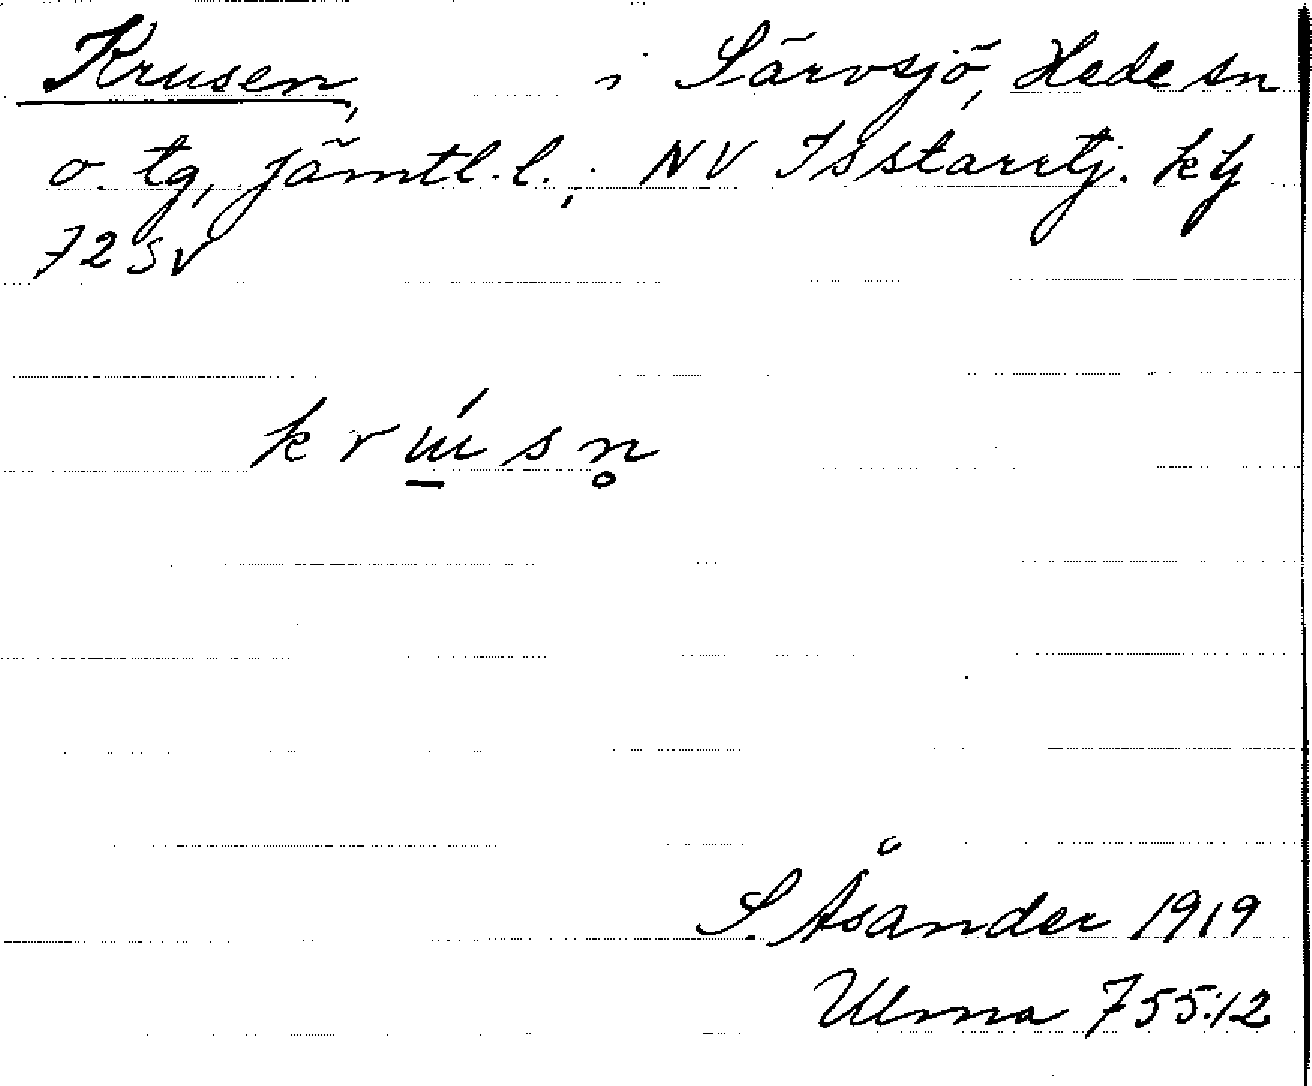 Krusen, i Särvsjö, Hede sn
o. tg, Jämtl. l.; NV Isstarrtj. kbl
72 SV
krɯ́sn̥
S. Åsander 1919
Ulma 755:12